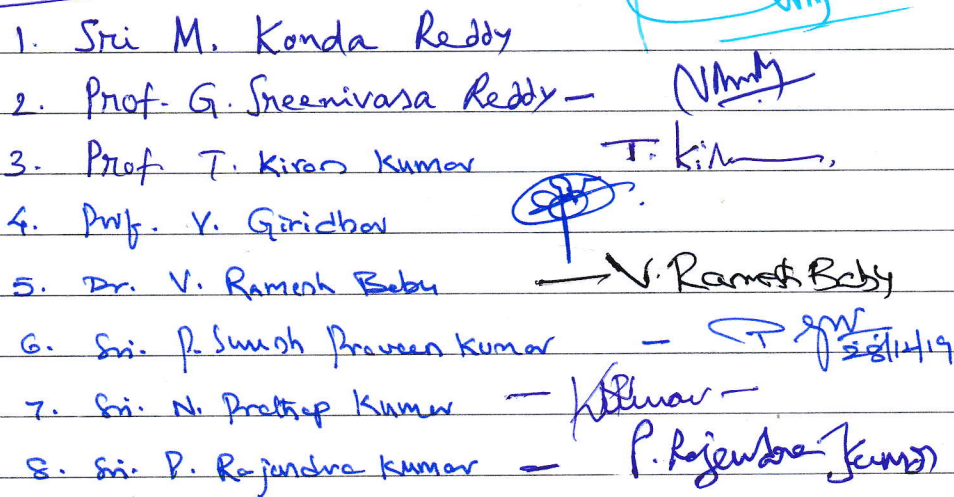 1. Sri M. Konda Reddy
2. Prof. G. Sreenivasa Reddy –
3. Prof T. Kiran Kumar T. Kir
4. Prof. V. Giridhar
5. Dr. V. Ramesh Babu — V. Ramesh Baby
6. Sri. P. Suresh Praveen Kumar – 28/12/19
7. Sri. N. Prathap Kumar –
8. Sri. P. Rajendra Kumar – P. Rajendra Kumar